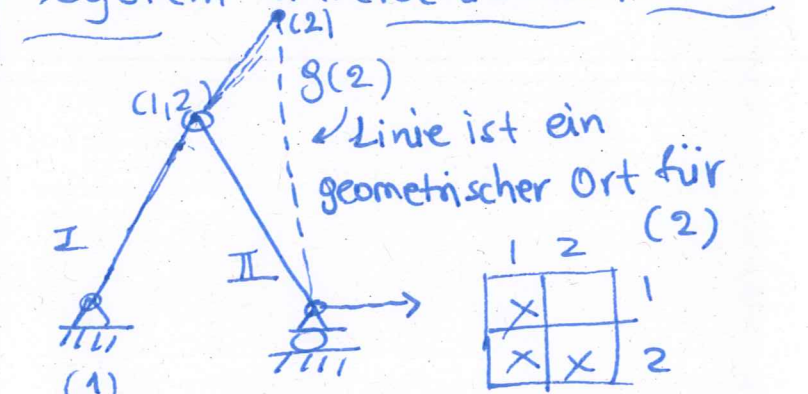 System
(2)
(1,2)
g(2)
Linie ist ein
geometrischer Ort für
(2)
I
II
1 2
X 1
X X 2
(1)